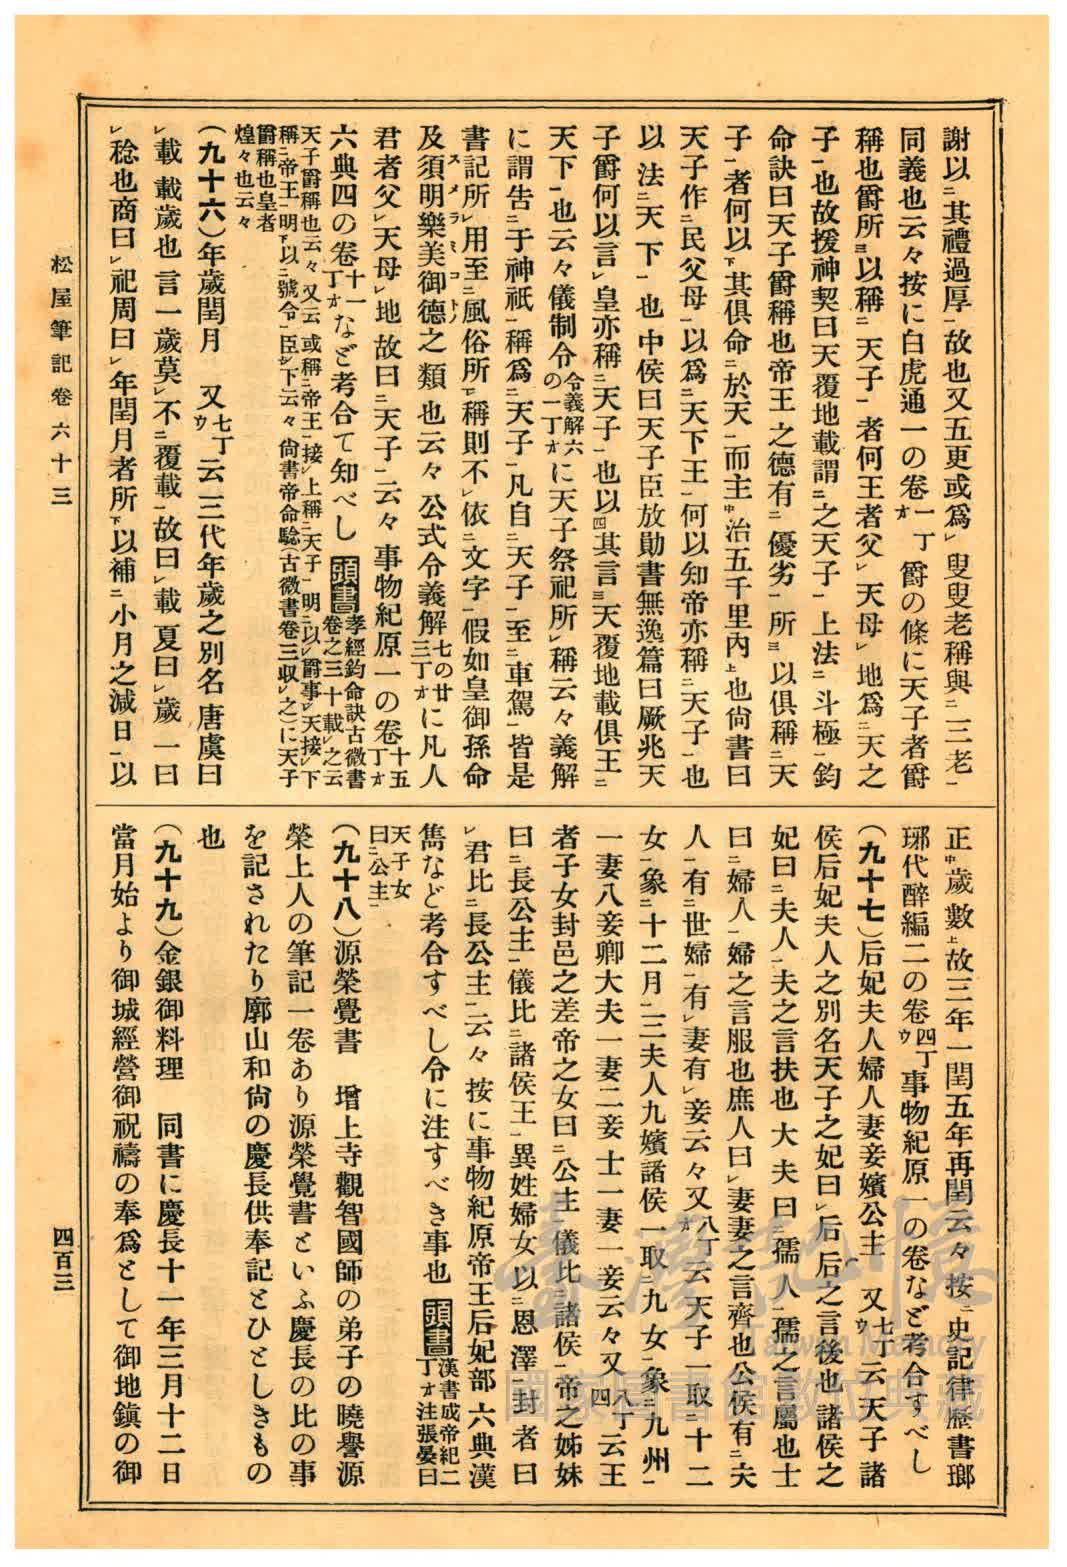 謝以㆓其禮過厚㆒故也又五更或爲㆑叟叟老稱與㆓三老㆒
同義也云々按に白虎通一の卷一丁オ爵の條に天子者爵
稱也爵所㆔以稱㆓天子㆒者何王者父㆑天母㆑地爲㆓天之
子㆒也故援神契曰天覆地載謂㆓之天子㆒上法㆓斗極㆒鈎
命訣曰天子爵稱也帝王之德有㆓優劣㆒所㆔以俱稱㆓天
子㆒者何以㆘其俱命㆓於天㆒而主㆗治五千里內㆖也尙書曰
天子作㆓民父母㆒以爲㆓天下王㆒何以知帝亦稱㆓天子㆒也
以法㆓天下㆒也中侯曰天子臣放勛書無逸篇曰厥兆天
子爵何以言㆑皇亦稱㆓天子㆒也以㆕其言㆔天覆地載俱王㆓
天下㆒也云々儀制令令義解六の一丁オに天子祭祀所㆑稱云々義解
に謂吿㆓于神祇㆒稱爲㆓天子㆒凡自㆓天子㆒至㆓車駕㆒皆是
書記所㆑用至㆓風俗所㆒㆑稱則不㆑依㆓文字㆒假如皇御孫命
及須明樂美御德之類也云々公式令義解七の廿三丁オに凡人
君者父㆑天母㆑地故曰㆓天子㆒云々事物紀原一の卷十五丁オ
六典四の卷十一丁オなど考合て知べし頭書孝經鈎命訣古微書卷之三十載㆑之云
天子爵稱也云々又云或稱㆓帝王㆒接㆑上稱㆓天子㆒明㆓以㆑爵事㆒㆑天接㆑下
稱㆓帝王㆒明㆘以㆓號令㆒臣㆖㆑下云々尙書帝命驗(古微書卷三収㆑之)に天子
爵稱也皇者
煌々也云々
(九十六)年歲閏月　又七丁ウ云三代年歲之別名唐虞曰
㆑載載歲也言一歲莫㆑不㆓覆載㆒故曰㆑載夏曰㆑歲一曰
㆑稔也商曰㆑祀周曰㆑年閏月者所㆘以補㆓小月之減日㆒以
正㆗歲數㆖故三年一閏五年再閏云々按㆓史記律歷書瑯
琊代醉編二の卷四丁ウ事物紀原一の卷など考合すべし
(九十七)后妃夫人婦人妻妾嬪公主　又七丁ウ云天子諸
侯后妃夫人之別名天子之妃曰㆑后后之言後也諸侯之
妃曰㆓夫人㆒夫之言扶也大夫曰㆓孺人㆒孺之言屬也士
曰㆓婦人㆒婦之言服也庶人曰㆑妻妻之言齊也公侯有㆓夫
人㆒有㆓世婦㆒有㆑妻有㆑妾云々又八丁オ云天子一取㆓十二
女㆒象㆓十二月㆒三夫人九嬪諸侯一取㆓九女㆒象㆓九州㆒
一妻八妾卿大夫一妻二妾士一妻一妾云々又八丁四云王
者子女封邑之差帝之女曰㆓公主㆒儀比㆓諸侯㆒帝之姊妹
曰㆓長公主㆒儀比㆓諸侯王㆒異姓婦女以㆓恩澤㆒封者曰
㆑君比㆓長公主㆒云々按に事物紀原帝王后妃部六典漢
雋など考合すべし令に注すべき事也頭書漢書成帝紀二丁オ注張晏曰
天子女
曰㆓公主㆒
(九十八)源榮覺書　增上寺觀智國師の弟子の曉譽源
榮上人の筆記一卷あり源榮覺書といふ慶長の比の事
を記されたり廓山和尙の慶長供奉記とひとしきもの
也
(九十九)金銀御料理　同書に慶長十一年三月十二日
當月始より御城經營御祝禱の奉爲として御地鎭の御
松屋筆記卷六十三
四百三
臺灣記憶
Taiwan Memory
國家圖書館數位典藏